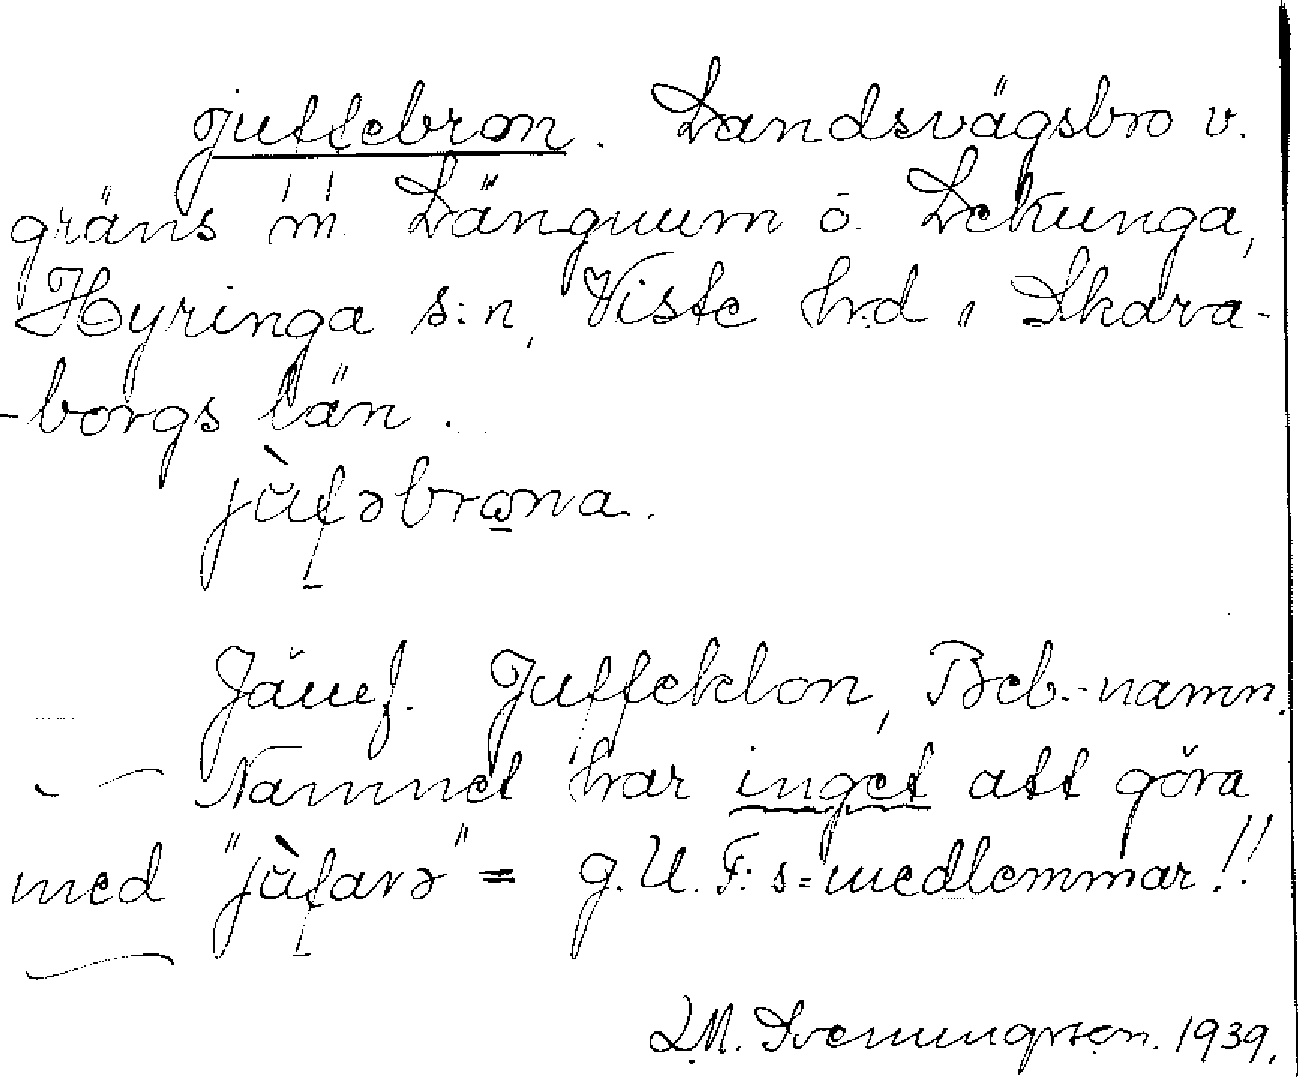 juffebron. Landsvägsbro v.
gräns m. Längnum o. Lekunga,
Hyringa s:n, Viste hrd i Skara-
-borgs län.
jùfəbrɷna.
Jämf. Juffeklon, Beb.-namn.
Namnet har inget att göra
med "jùfarə" = g.U.F:s=medlemmar!!
L.M. Svenungsson. 1939.